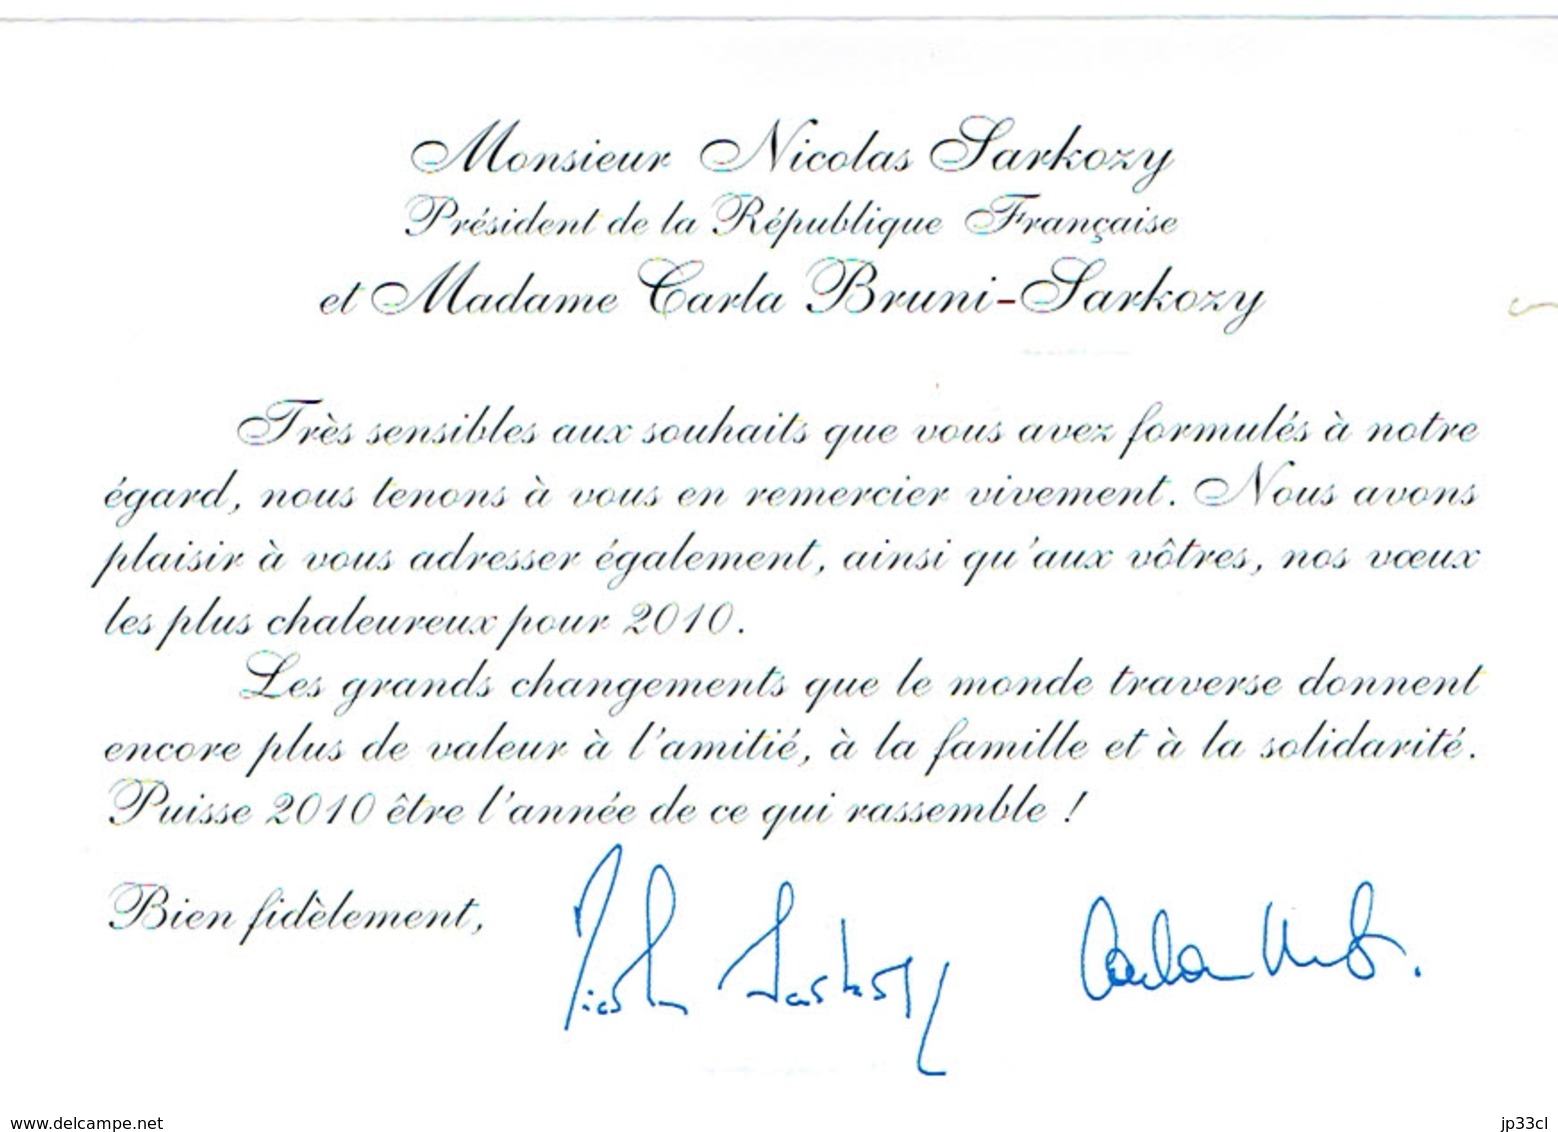 Monsieur Nicolas Sarkozy
Président de la République Française
et Madame Carla Bruni-Sarkozy
Très sensibles aux souhaits que vous avez formulés à notre
égard, nous tenons à vous en remercier vivement. Nous avons
plaisir à vous adresser également, ainsi qu'aux vôtres, nos vœux
les plus chaleureux pour 2010.
Les grands changements que le monde traverse donnent
encore plus de valeur à l'amitié, à la famille et à la solidarité.
Puisse 2010 être l'année de ce qui rassemble !
Bien fidèlement,
Nicolas Sarkozy
Carla
www.delcampe.net
jp33cl